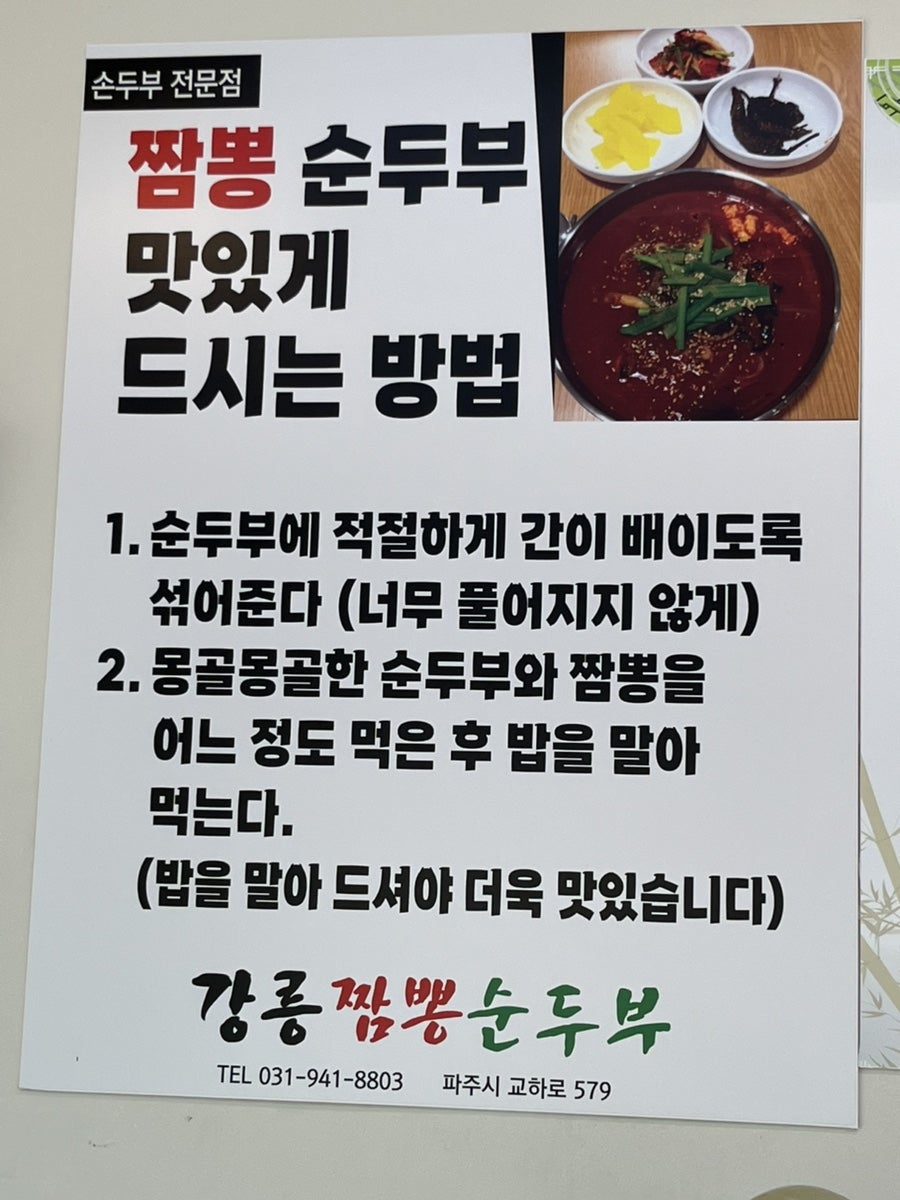 손두부 전문점
짬뽕 순두부
맛있게
드시는 방법
1. 순두부에 적절하게 간이 배이도록
섞어준다 (너무 풀어지지 않게)
2. 몽골몽골한 순두부와 짬뽕을
어느 정도 먹은 후 밥을 말아
먹는다.
(밥을 말아 드셔야 더욱 맛있습니다)
강릉짬뽕순두부
TEL 031-941-8803 파주시 교하로 579